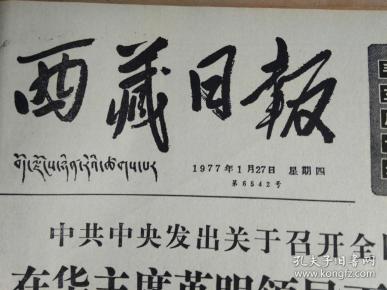 西藏日报
1977年1月27日 星期四
第6542号
中共中央发出关于召开全
在华主席英明领导下
孔夫子旧书网